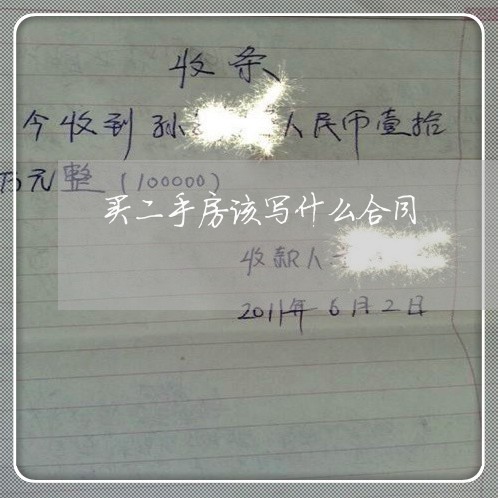 收条
今收到孙 人民币壹拾
万元整(100000)
买二手房该写什么合同
收款人
2011年6月2日